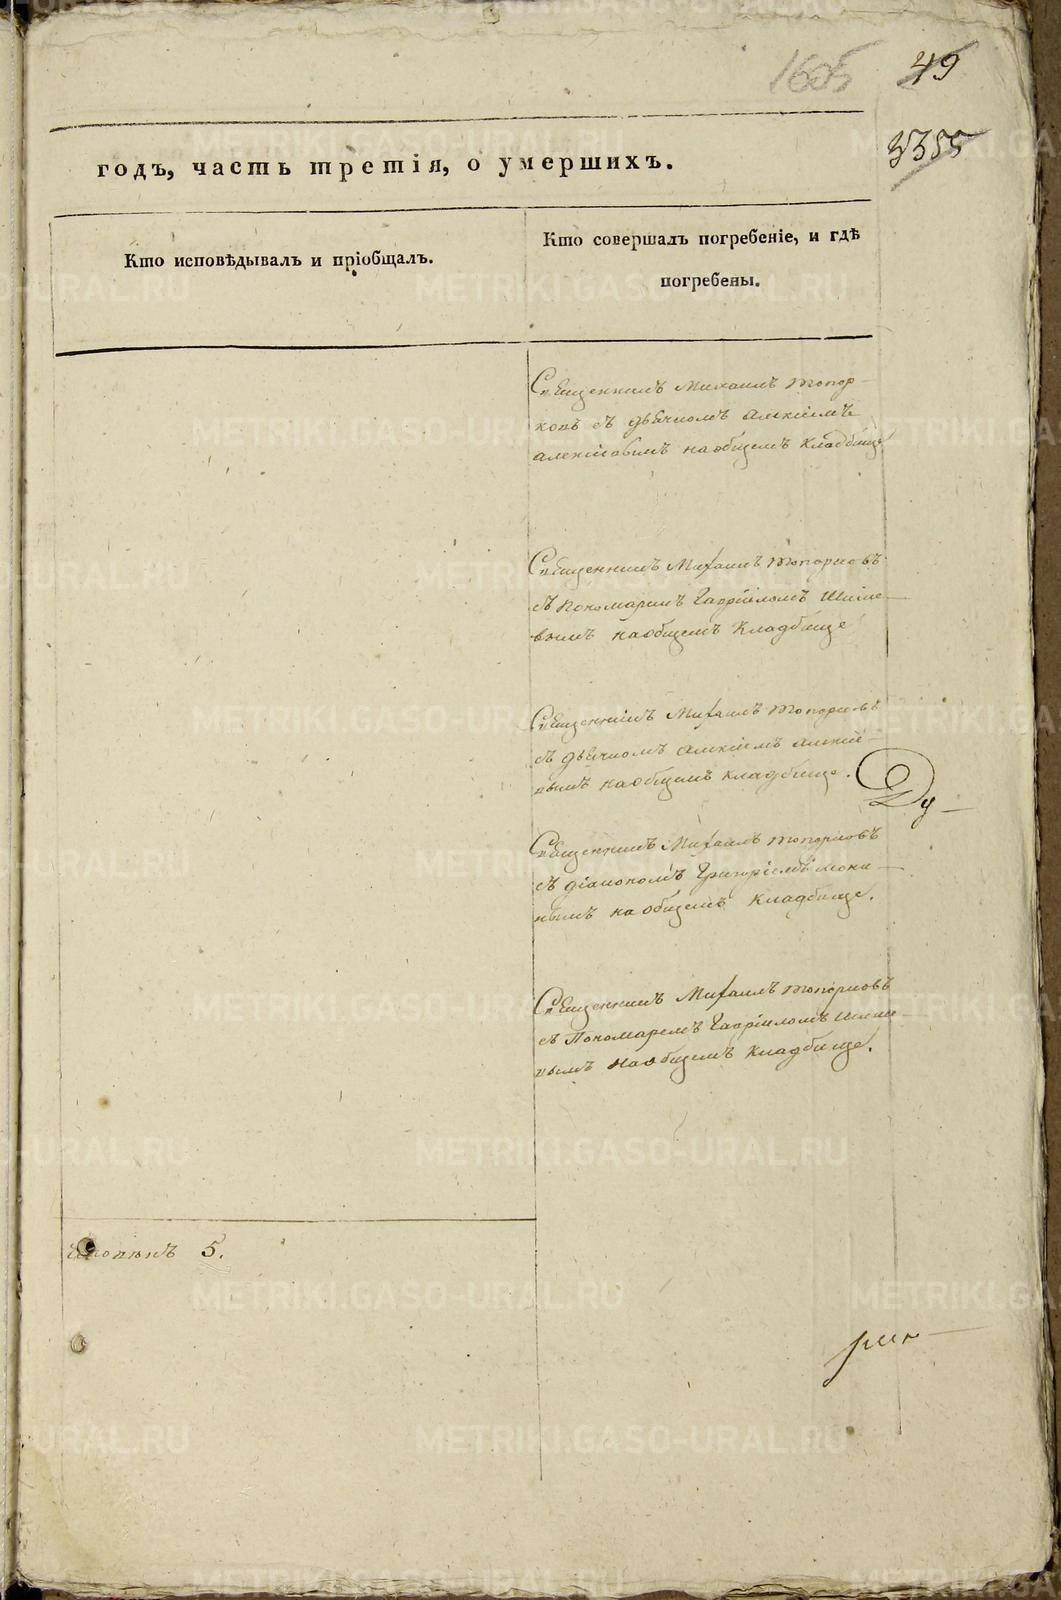 1605 49
3355
годъ, часть третія, о умершихъ.
Кто исповѣдывалъ и пріобщалъ.
Кто совершалъ погребеніе, и гдѣ
погребены.
Священникъ Михаилъ Топор-
ковъ съ дьячкомъ Алексіемъ
Алексіовымъ на общемъ кладбище
Священникъ Михаилъ Топорковъ
съ Пономаримъ Гавріиломъ
вымъ на общемъ Кладбище
Священникъ Михаилъ Топорковъ
съ дьячкомъ Алексіемъ Алексіе-
вымъ на общемъ кладбище.
Ду-
Священникъ Михаилъ Топорковъ
съ діакономъ Григоріемъ
на общемъ Кладбище.
Священникъ Михаилъ Топорковъ
съ Пономаремъ Гавріиломъ
вымъ на общемъ Кладбище.
Человѣкъ 5.
METRIKI.GASO-URAL.RU